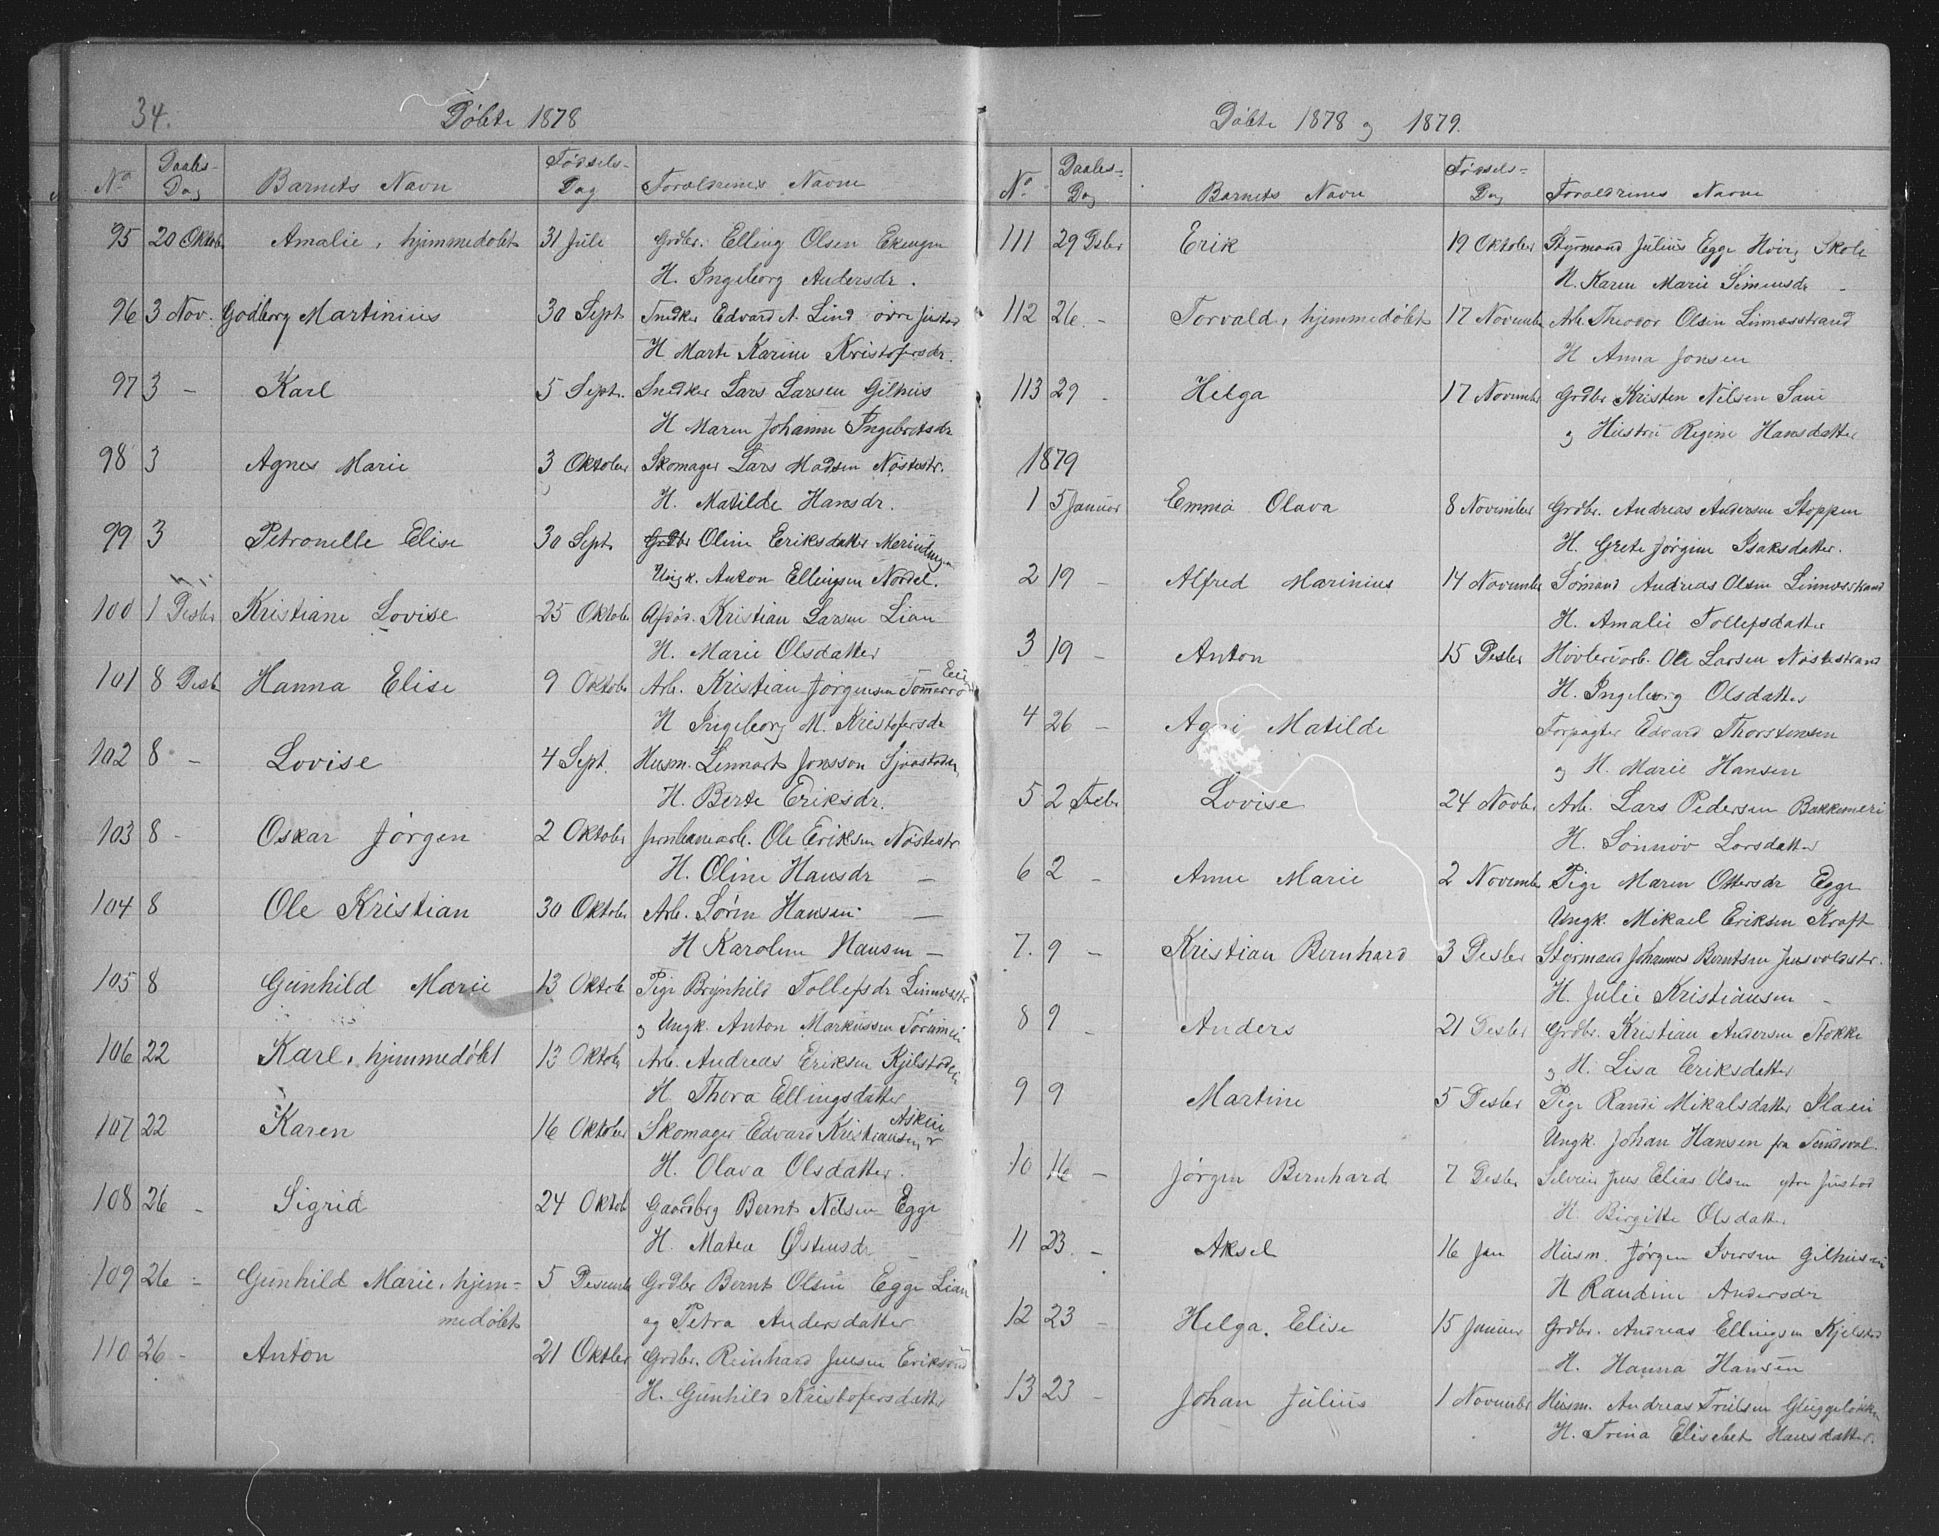 34.
Döbte 1878
No
Daabs-
Dag
Barnets Navn
Födsels-
Dag
Forældrenes Navne
95 20 Oktob Amalie, hjemmedöbt 31 Juli Grdbr. Elling Olsen
H. Ingeborg Andersdr.
96 3 Nov. Godborg Martinius 30 Sept Snedker Edvard A. Lind övre Justad
H. Marte Karine Kristofersdr.
97 3 - Karl 5 Sept. Snedker Lars Larsen Gilhus
H. Maren Johanne Ingebretsdr
98 3 Agnes Marie 3 Oktober Skomager Lars Madsen Nöstestr.
H. Matilde Hansdr.
99 3 Petronelle Elise 30 Sept. Oline Eriksdatter
Ungk. Anton Ellingsen Nordal.
100 1 Desbr Kristiane Lovise 25 Oktober Afdöd. Kristian Larsen Lian
H. Marie Olsdatter
101 8 Desb Hanna Elise 9 Oktober Arb. Kristian Jörgensen
H Ingeborg M. Kristofersdr
102 8 - Lovise 4 Sept. Husm. Lennart Jonsson
H. Berte Eriksdr.
103 8 - Oskar Jörgen 2 Oktober Jernbanearb. Ole Eriksen Nöstestr
H. Oline Hansdr -
104 8 Ole Kristian 30 Oktober Arb. Sören Hansen -
H Karoline Hansen -
105 8 Gunhild Marie 13 Oktob Pige Brynhild Tollefsdr Linnesstr
og Ungk. Anton Markussen
106 22 Karl, hjemmedöbt 13 Oktob Arb. Andreas Eriksen
H. Thora Ellingsdatter
107 22 Karen 16 Oktober Skomager Edvard Kristiansen
H. Olava Olsdatter.
108 26 - Sigrid 24 Oktob Gaardbrg Bernt Nilsen Egge
H. Matea Østensdr -
109 26 - Gunhild Marie, hjem-
medöbt
5 Desemb Grdbr Bernt Olsen Egge Lian
og Petra Andersdatter
110 26 - Anton 21 Oktber Grdbr. Reinhard Jensen
H. Gunhild Kristofersdatter
Döbte 1878 og 1879.
No
Daabs-
Dag
Barnets Navn
Födsels-
Dag
Forældrenes Navne
111 29 Dsbr Erik 19 Oktober Styrmand Julius Egge
H. Karen Marie Simensdr -
112 26 - Torvald, hjemmedöbt 17 November Arb. Theodor Olsen Linnesstrand
H Anna Jonsen
113 29 - Helga 17 November Grdbr Kristen Nilsen Saue
og Hustru Regine Hansdatter
1879
1 5 Januar Emma Olava 8 November Grdbr. Andreas Andersen Stoppen
H. Grete Jörgine Isaksdatter.
2 19 - Alfred Marinius 14 November Sömand Andreas Olsen Linnesstrand
H. Amalie Tollefsdatter
3 19 - Anton 15 Desbr Hövleriarb. Ole Larsen Nöstestrand
H. Ingeborg Olsdatter
4 26 - Matilde Forpagter Edvard Thorstensen
og H. Marie Hansen
5 2 Febr Lovise 24 Novbr Arb. Lars Pedersen
H. Sönnöv Larsdatter
6 2 - Anne Marie 2 November Pige Maren Ottersdr Egge
Ungk. Mikael Eriksen Kraft
7. 9 - Kristian Bernhard 3 Desbr Styrmand Johannes Berntsen
H. Julie Kristiansen -
8 9 - Anders 21 Desbr Grdbr. Kristian Andersen Stokke
og H. Lisa Eriksdatter
9 9 Martine 5 Desbr Pige Randi Mikalsdatter
Ungk. Johan Hansen fra Sundsval.
10 16 - Jörgen Bernhard 7 Desbr Jens Elias Olsen ytre Justad
H. Birgitte Olsdatter
11 23. - Aksel 16 Jan Husm. Jörgen Iversen
H Randine Andersdr
12 23 - Helga. Elise 15 Januar Grdbr. Andreas Ellingsen Kjelstad
H. Hanna Hansen
13 23 - Johan Julius 1 November Husm. Andreas Truelsen Gluggelökken
H. Trina Elisebet Hansdatter.